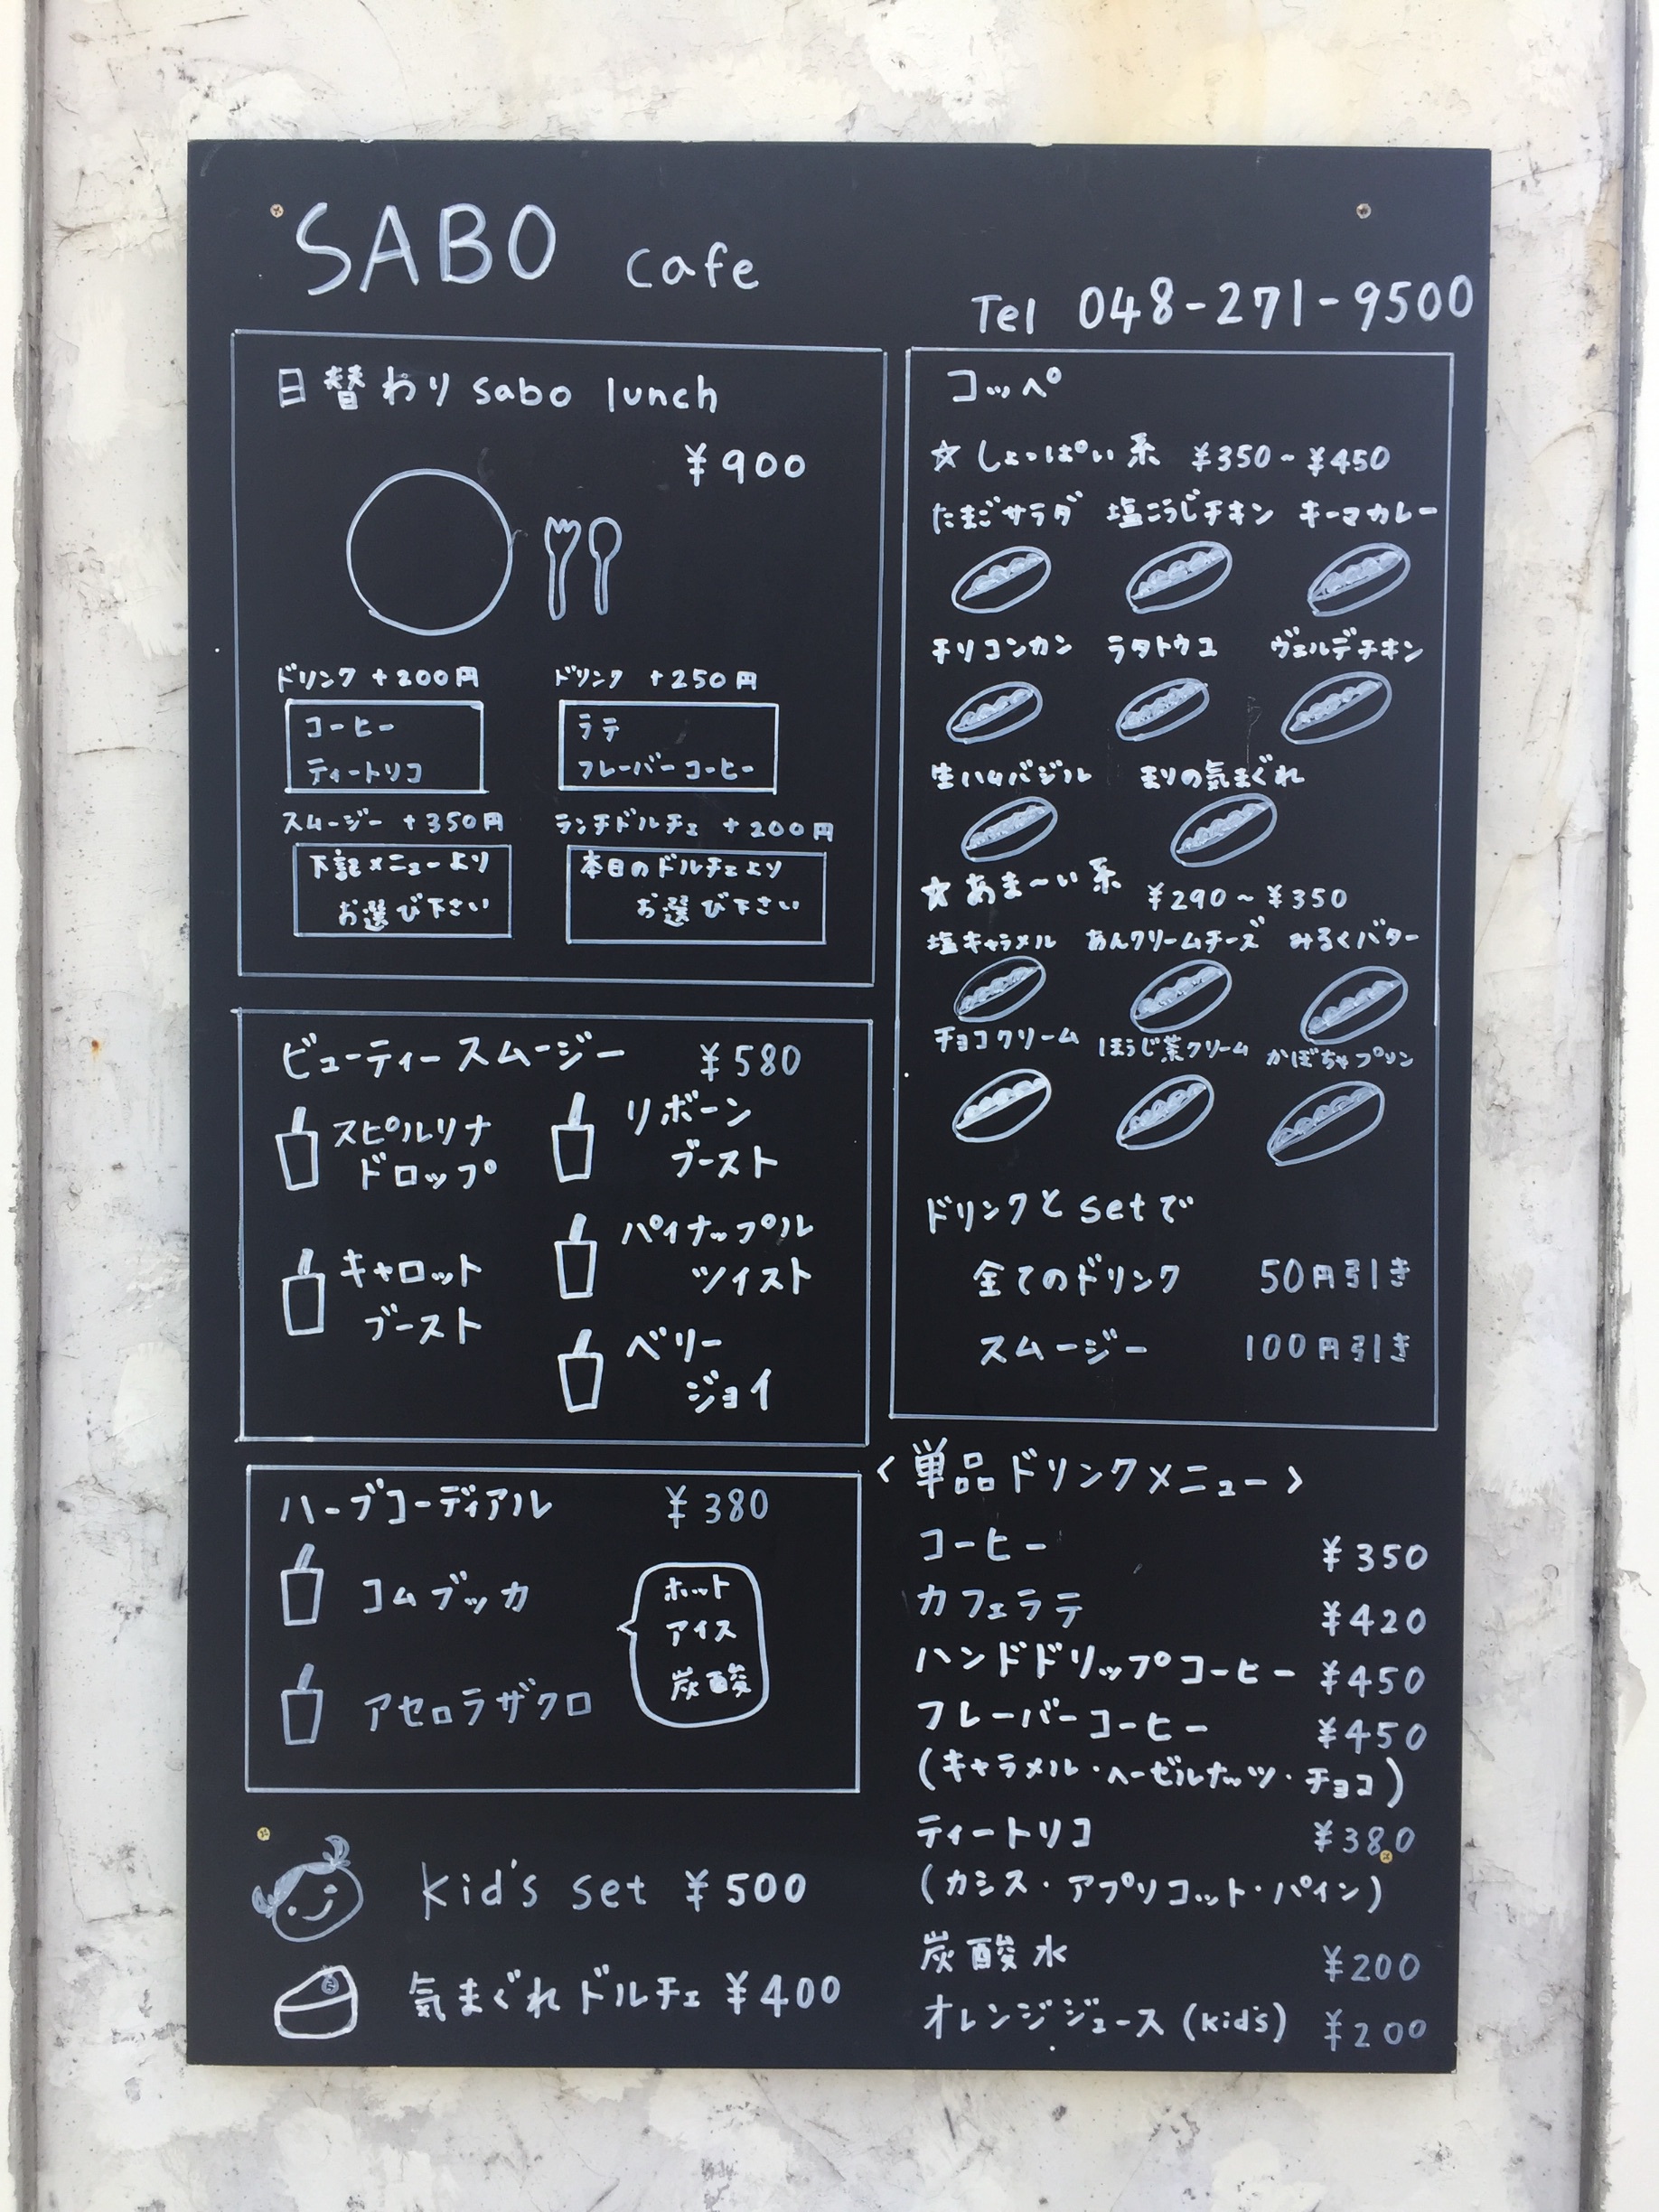 SABO cafe
Tel 048-271-9500
日替わり sabo lunch
¥900
ドリンク +200円
コーヒー
ティートリコ
ドリンク +250円
ラテ
フレーバーコーヒー
スムージー +350円
下記メニューより
お選び下さい
ランチドルチェ +200円
本日のドルチェより
お選び下さい
ビューティースムージー ¥580
スピルリナ
ドロップ
リボーン
ブースト
キャロット
ブースト
パイナップル
ツイスト
ベリー
ジョイ
ハーブコーディアル ¥380
コムブッカ
アセロラザクロ
ホット
アイス
炭酸
kid's set ¥500
気まぐれドルチェ ¥400
コッペ
☆しょっぱい系 ¥350~¥450
たまごサラダ 塩こうじチキン キーマカレー
チリコンカン ラタトウユ ヴェルデチキン
生ハムバジル まりの気まぐれ
☆あま~い系 ¥290~¥350
塩キャラメル あんクリームチーズ みるくバター
チョコクリーム ほうじ茶クリーム かぼちゃプリン
ドリンクとsetで
全てのドリンク 50円引き
スムージー 100円引き
<単品ドリンクメニュー>
コーヒー ¥350
カフェラテ ¥420
ハンドドリップコーヒー ¥450
フレーバーコーヒー ¥450
(キャラメル・ヘーゼルナッツ・チョコ)
ティートリコ ¥380
(カシス・アプリコット・パイン)
炭酸水 ¥200
オレンジジュース(kid's) ¥200